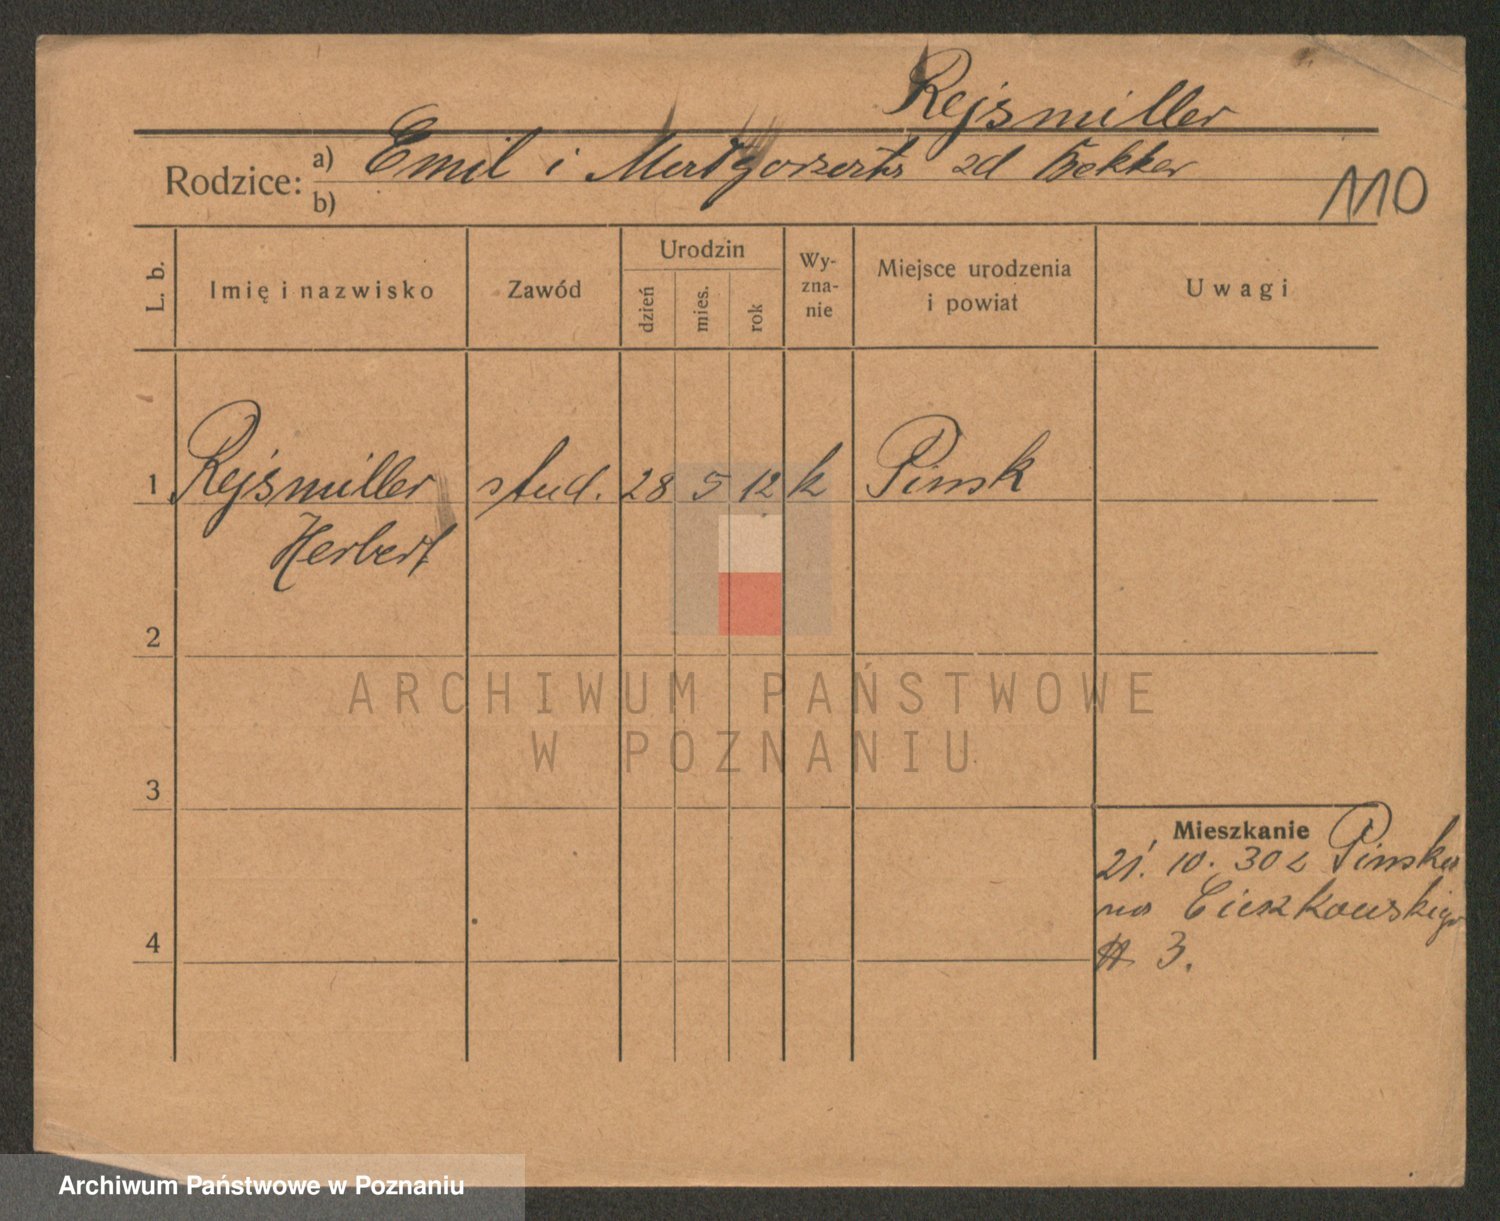 Rejsmiller
Rodzice: a) Emil i Małgorzata zd Bekker
b)
110
L. b.
Imię i nazwisko
Zawód
Urodzin
dzień
mies.
rok
Wy-
zna-
nie
Miejsce urodzenia
i powiat
Uwagi
1 Rejsmiller stud. 28 5 12 k Pinsk
Herbert
2
ARCHIWUM PAŃSTWOWE
W POZNANIU
3
Mieszkanie
21. 10. 30 z Pinska
na Cieszkowskiego
3.
4
Archiwum Państwowe w Poznaniu